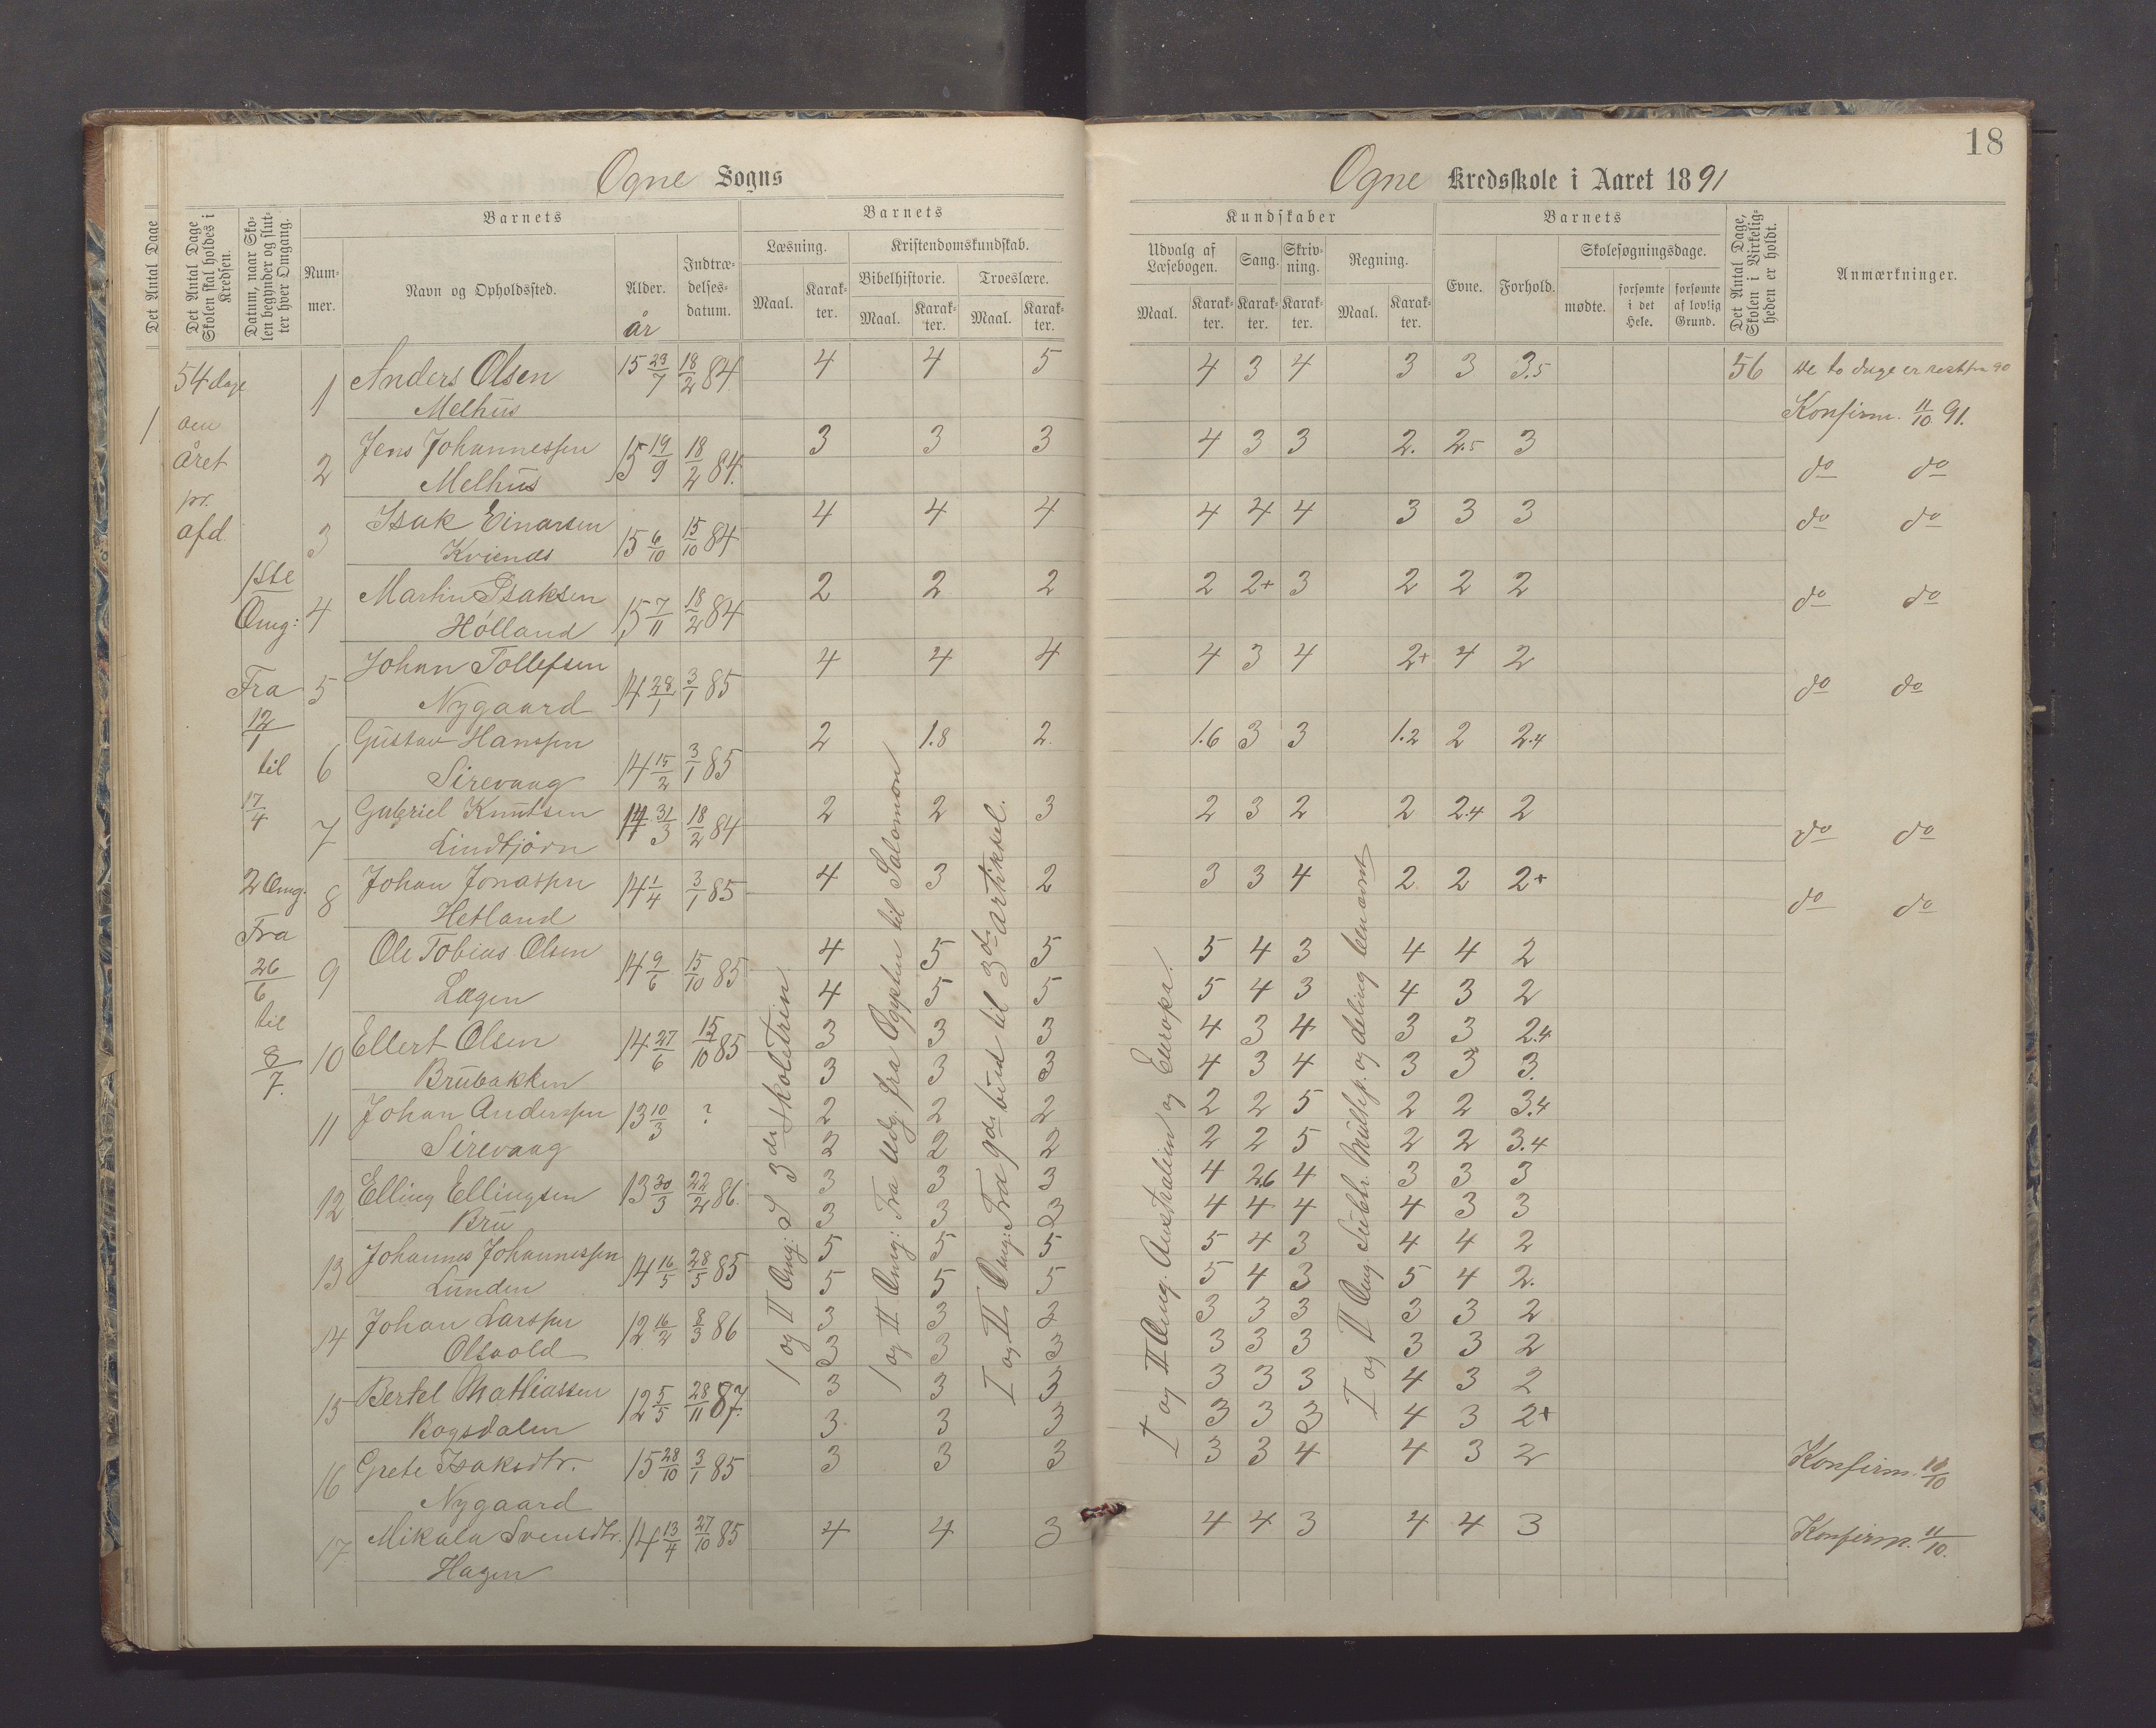 18
Ogne Sogns
Ogne Kredsskole i Aaret 1891
Det Antal Dage
Det Antal Dage Skolen skal holdes i Kredsen.
Datum, naar Skolen begynder og slutter hver Omgang.
Nummer.
Barnets
Navn og Opholdssted.
Alder.
Indtrædelsesdatum.
år
Barnets
Læsning.
Maal.
Karakter.
Kristendomskundskab.
Bibelhistorie.
Maal.
Karakter.
Troeslære.
Maal.
Karakter.
Kundskaber
Udvalg af Læsebogen.
Maal.
Karakter.
Sang.
Karakter.
Skrivning.
Karakter.
Regning.
Maal.
Karakter.
Barnets
Evne.
Forhold.
Skolesøgningsdage.
mødte.
forsømte i det Hele.
forsømte af lovlig Grund.
Det Antal Dage, Skolen i Virkeligheden er holdt.
Anmærkninger.
54 dage
om
året
pr.
afd.
1ste
Omg:
Fra
12/1
til
17/4
2 Omg.
Fra
26/6
til
8/7.
1 Anders Olsen Melhus 15 23/7 18/2 84. 4 4 5 4 3 4 3 3 3.5 56 De to dage er rest fra 90
Konfirm. 11/10 91.
2 Jens Johannessen Melhus 15 19/9 18/2 84. 3 3 3 4 3 3 2. 2.5 3 do do
3 Isak Einarsen 15 6/10 15/10 84 4 4 4 4 4 4 3 3 3 do do
4 Martin Isaksen Hølland 15 7/11 18/2 84 2 2 2 2 2+ 3 2 2 2 do do
5 Johan Tollefsen Nygaard 14 28/1 3/1 85 4 4 4 4 3 4 2+ 4 2 do do
6 Gustav Hanssen Sirevaag 14 15/2 3/1 85 2 1.8 2. 1.6 3 3 1.2 2 2.4
7 Gabriel Knudsen Lindtjørn 14 31/3 18/2 84 2 2 3 2 3 2 2 2.4 2 do do
8 Johan Jonassen Hetland 14 1/4 3/1 85 4 3 2 3 3 4 2 2 2+ do do
9 Ole Tobias Olsen Lægen 14 9/6 15/10 85 4 5 5 5 4 3 4 4 2
4 5 5 5 4 3 4 3 2
10 Ellert Olsen Brubakken 14 27/6 15/10 85 3 3 3 4 3 4 3 3 2.4
3 3 3 4 3 4 3 3 3.
11 Johan Anderssen Sirevaag 13 10/3 ? 2 2 2 2 2 5 2 2 3.4
2 2 2 2 2 5 2 2 3.4
12 Elling Ellingsen Bru 13 30/3 22/2 86. 3 3 3 4 2.6 4 3 3 3
3 3 3 4 4 4 4 3 3
13 Johannes Johannessen Lunden 14 16/5 28/5 85 5 5 5 5 4 3 4 4 2
5 5 5 5 4 3 5 4 2.
14 Johan Larssen 12 16/2 8/3 86 3 3 3 3 3 3 3 3 2
3 3 3 3 3 3 3 3 2
15 Bertel Mathiassen Bogsdalen 12 5/5 28/11 87. 3 3 3 3 3 3 4 3 2
3. 3 3 3 3 3 4 3 2+
16 Grete Isaksdtr. Nygaard 15 28/10 3/1 85 3 3 3 3 3 4 4 3 2 Konfirm. 10/10
17 Mikala Svensdtr. Hagen 14 13/4 27/10 85 4 4 3 4 4 3 4 4 3 Konfirm. 11/10.
1 og II Omg: I 3de skoletrin
1 og II Omg: Fra Udg. fra Ægypten til Salomon
I og II Omg: Fra 9de bud til 3de artiksel.
I og II Omg. Australien og Europa.
I og II Omg. Subtr. Multip. og deling